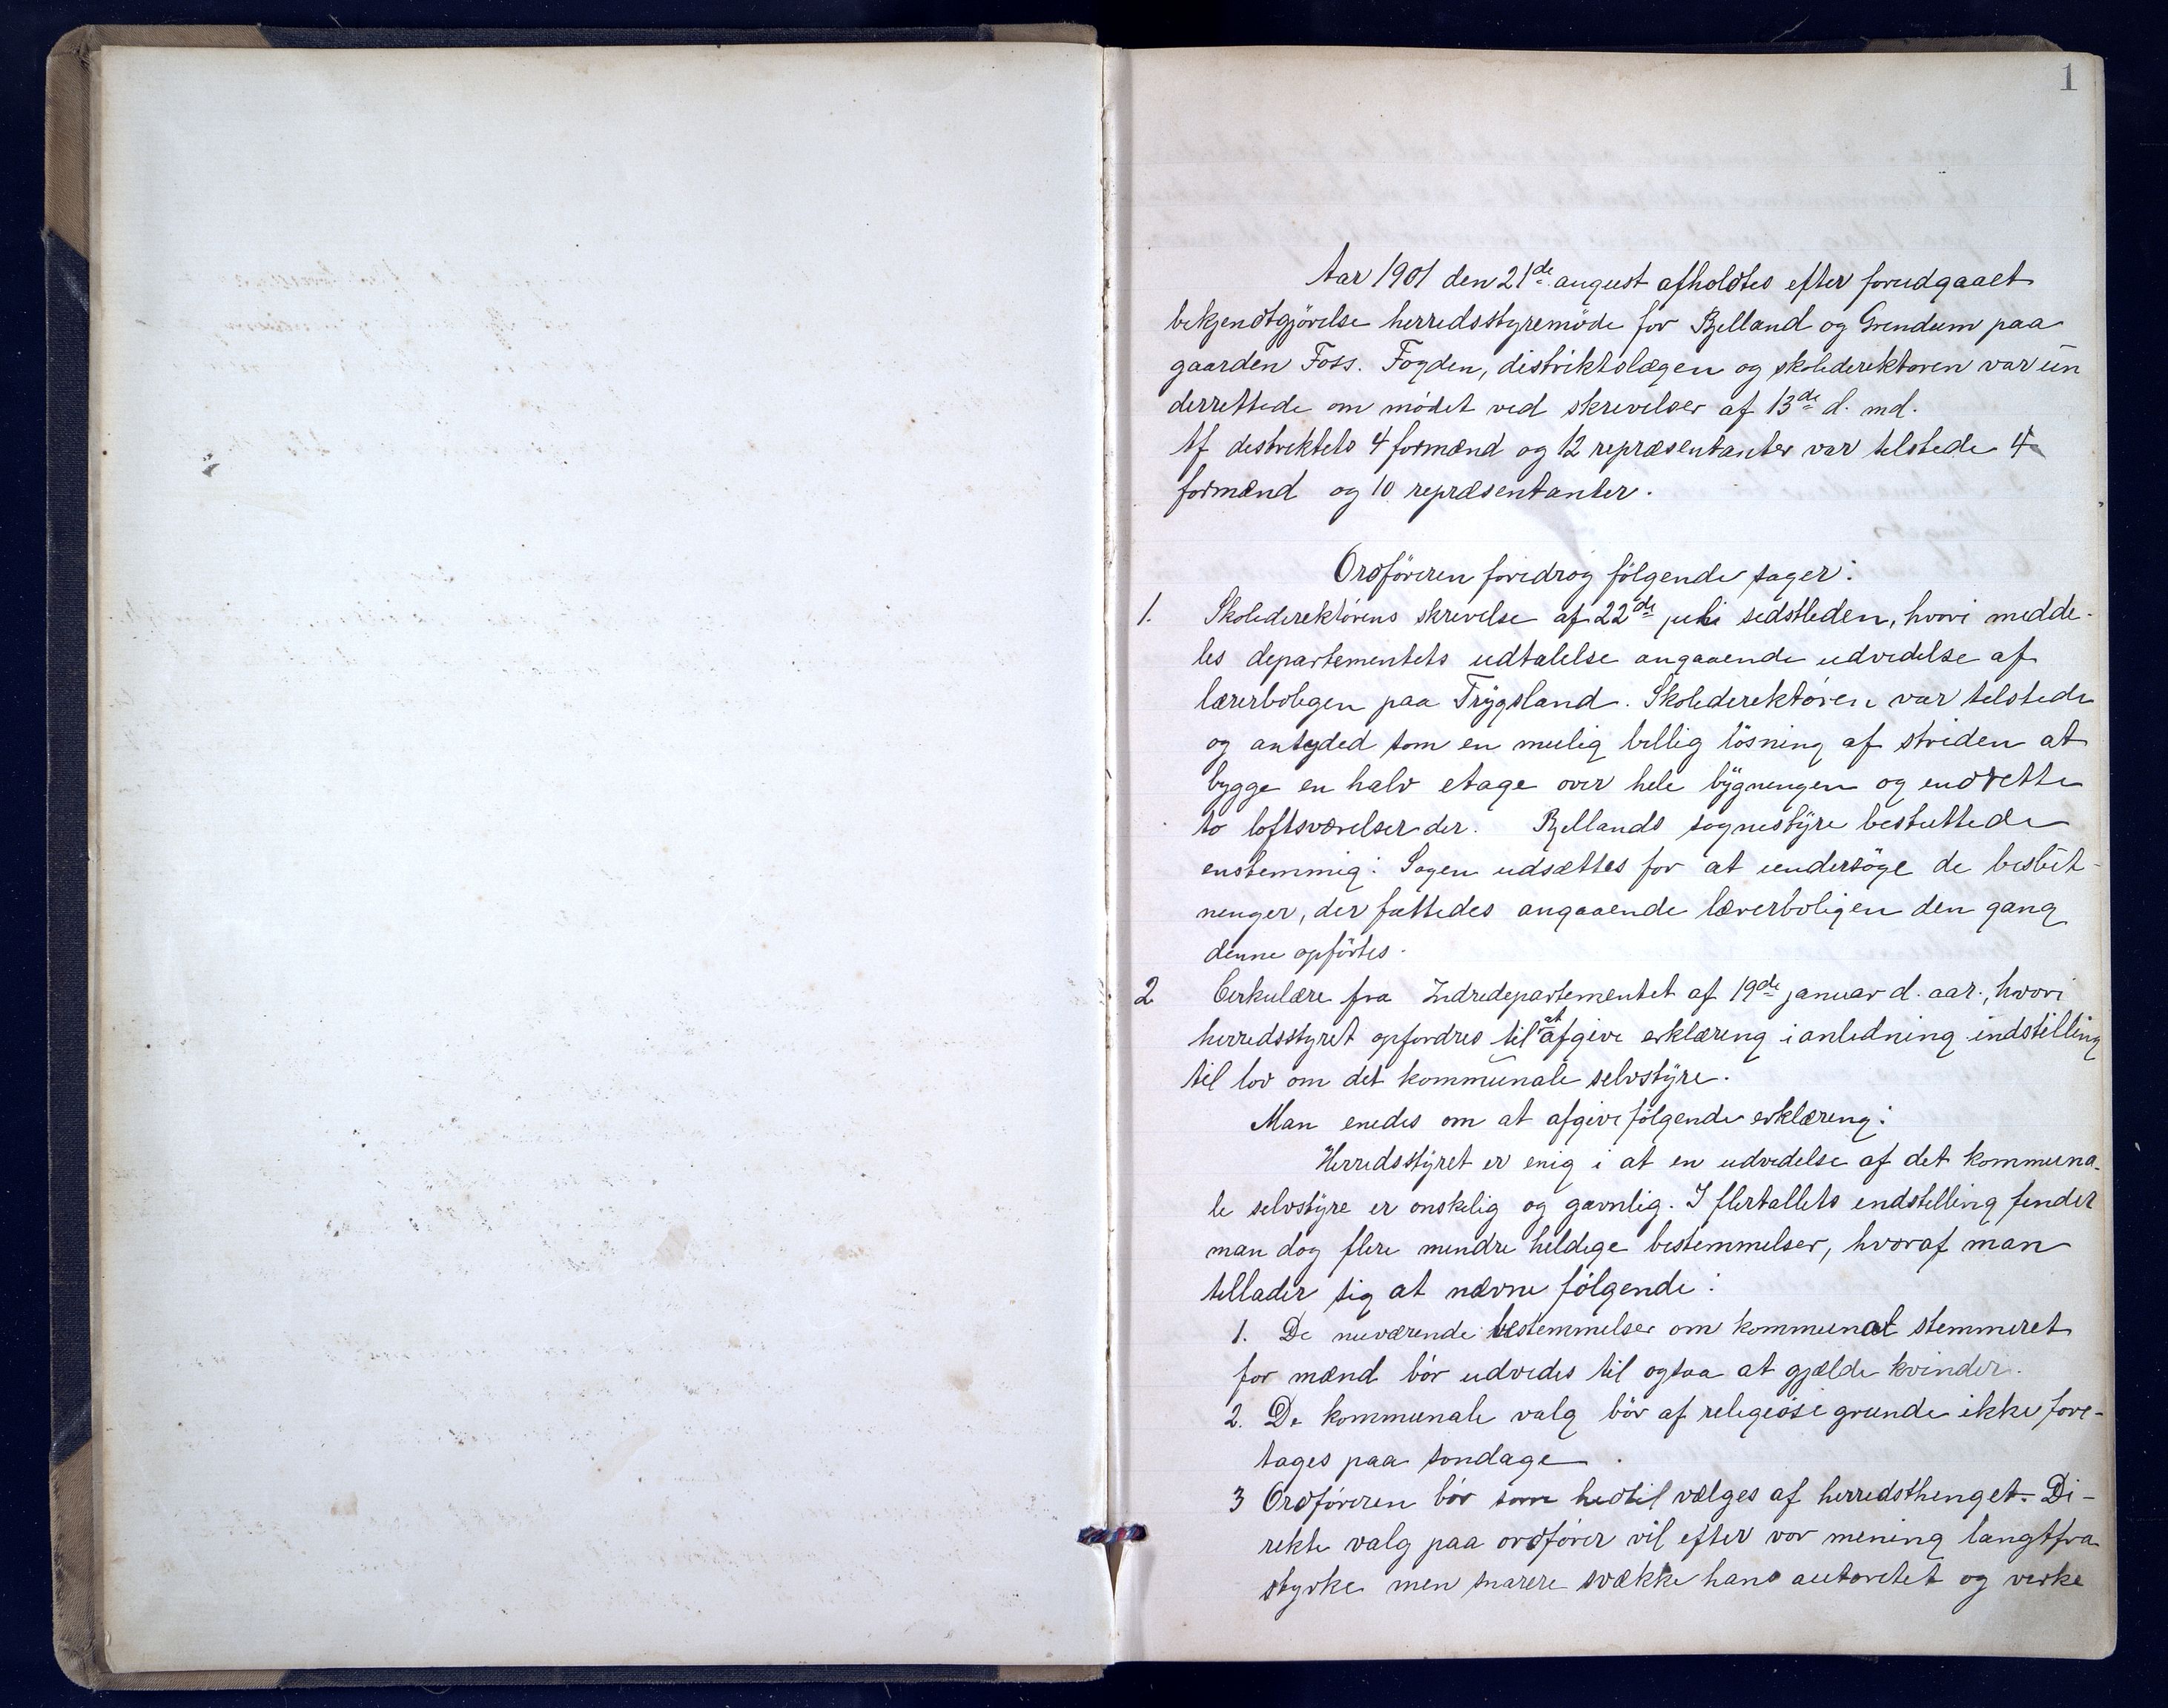 1
Aar 1901 den 21de august afholdtes efter forudgaaet
bekjendtgjörelse herredsstyremöde for Bjelland og Grendum paa
gaarden Foss. Fogden, distriktslægen og skoledirektøren var un
derrettede om mödet ved skrivelser af 13de d. md.
Af distriktets 4 formænd og 12 repræsentanter var tilstede 4
formænd og 10 repræsentanter.
Ordföreren foredrog fölgende sager:
1. Skoledirektörens skrivelse af 22de juli sidstleden, hvori medde-
les departementets udtalelse angaaende udvidelse af
lærerboligen paa Trygsland. Skoledirektören var tilstede
og antyded som en mulig billig lösning af striden at
bygge en halv etage over hele bygningen og indrette
to loftsværelser der. Bjellands sognestyre besluttede
enstemmig: Sagen udsættes for at undersöge de beslut-
ninger, der fattedes angaaende lærerboligen den gang
denne opförtes.
2 Cirkulære fra Indredepartementet af 19de januar d. aar., hvori
herredsstyret opfordres til at afgive erklæring i anledning indstilling
til lov om det kommunale selvstyre.
Man enedes om at afgive fölgende erklæring:
Herredsstyret er enig i at en udvidelse af det kommuna-
le selvstyre er onskelig og gavnlig. I flertallets indstilling finder
man dog flere mindre heldige bestemmelser, hvoraf man
tillader sig at nævne fölgende:
1. De nuværende bestemmelser om kommunal stemmeret
for mænd bör udvides til ogsaa at gjælde kvinder.
2. De kommunale valg bör af religiöse grunde ikke fore-
tages paa sondage.
3 Ordföreren bör som hidtil vælges af herredsthinget. Di-
rekte valg paa ordförer vil efter vor mening langtfra
styrke men snarere svække hans autoritet og virke